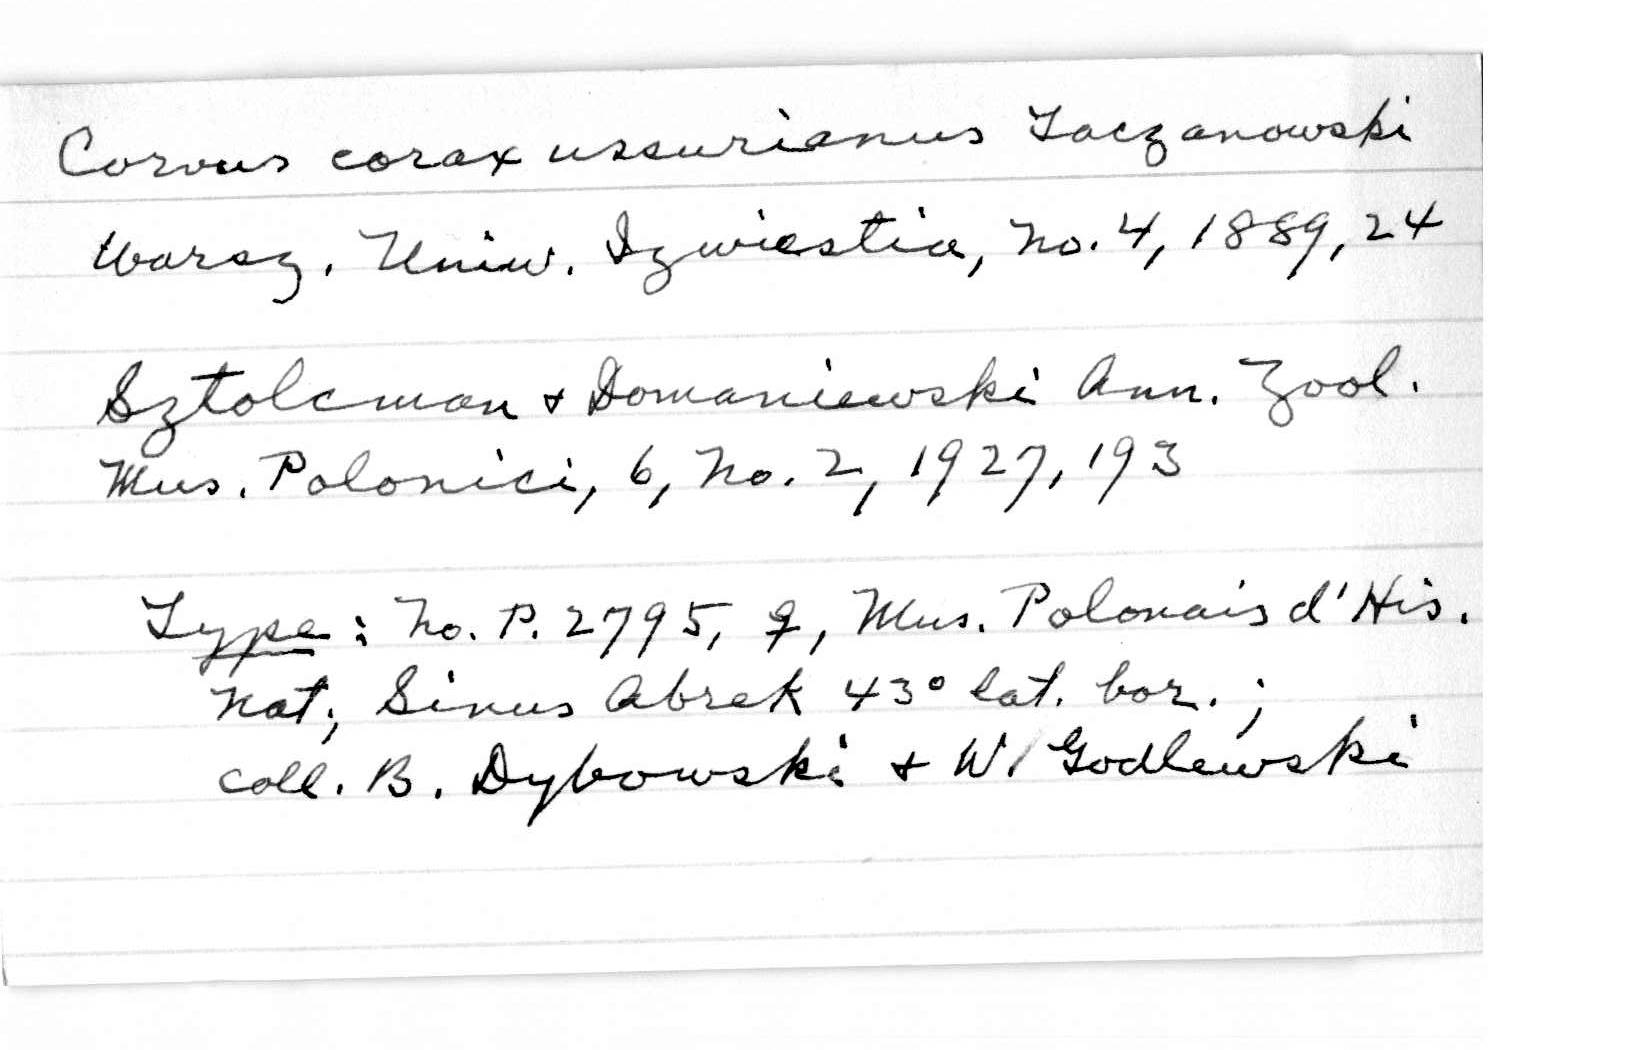 Corvus corax ussurianus Taczanowski
Warsz. Uniw. Izwiestia, No. 4, 1889, 24
Sztolcman & Domaniewski Ann. Zool.
Mus. Polonici, 6, No. 2, 1927, 193
Type: No. P. 2795, ♀, Mus. Polonais d'His.
Nat; Sinus Abrek 43° lat. bor.;
coll. B. Dybowski & W. Godlewski